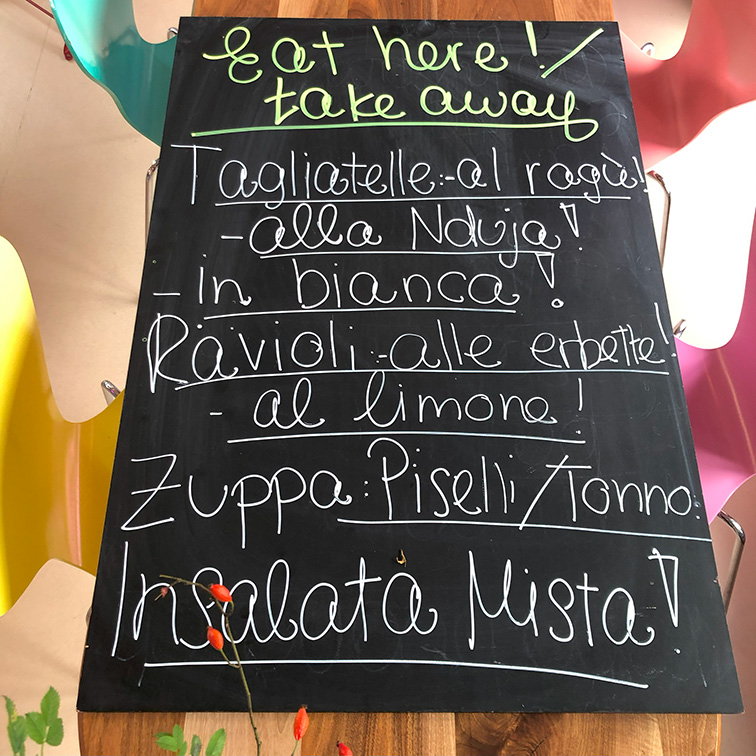 Eat here!/
take away
Tagliatelle:-al ragù!
-alla Nduja!
-in bianca!
Ravioli:-alle erbette!
- al limone!
Zuppa:Piselli/Tonno:
Insalata Mista!